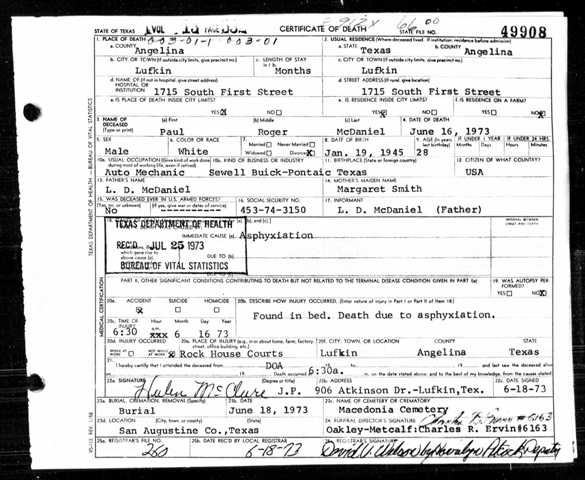 STATE OF TEXAS CERTIFICATE OF DEATH STATE FILE NO. 49908
003-01-1 003-01 66 00
1. PLACE OF DEATH 2. USUAL RESIDENCE (Where deceased lived. If institution: residence before admission)
a. COUNTY Angelina a. STATE Texas b. COUNTY Angelina
b. CITY OR TOWN (If outside city limits, give precinct no.) Lufkin c. LENGTH OF STAY Months c. CITY OR TOWN (If outside city limits, give precinct no.) Lufkin
d. NAME OF (If not in hospital, give street address) HOSPITAL OR INSTITUTION 1715 South First Street d. STREET ADDRESS (If rural, give location) 1715 South First Street
e. IS PLACE OF DEATH INSIDE CITY LIMITS? YES NO e. IS RESIDENCE INSIDE CITY LIMITS? YES NO f. IS RESIDENCE ON A FARM? YES NO
3. NAME OF DECEASED (Type or print) (a) First Paul (b) Middle Roger (c) Last McDaniel 4. DATE OF DEATH June 16, 1973
5. SEX Male 6. COLOR OR RACE White 7. Married Never Married Widowed Divorced 8. DATE OF BIRTH Jan. 19, 1945 9. AGE 28 IF UNDER 1 YEAR IF UNDER 24 HRS.
10a. USUAL OCCUPATION (Give kind of work done during most of working life, even if retired) Auto Mechanic 10b. KIND OF BUSINESS OR INDUSTRY Sewell Buick-Pontiac 11. BIRTHPLACE (State or foreign country) Texas 12. CITIZEN OF WHAT COUNTRY? USA
13. FATHER'S NAME L. D. McDaniel 14. MOTHER'S MAIDEN NAME Margaret Smith
15. WAS DECEASED EVER IN U.S. ARMED FORCES? No 16. SOCIAL SECURITY NO. 453-74-3150 17. INFORMANT L. D. McDaniel (Father)
TEXAS DEPARTMENT OF HEALTH
REC'D JUL 25 1973
BUREAU OF VITAL STATISTICS
IMMEDIATE CAUSE (a) Asphyxiation
DUE TO (b)
DUE TO
PART II. OTHER SIGNIFICANT CONDITIONS CONTRIBUTING TO DEATH BUT NOT RELATED TO THE TERMINAL DISEASE CONDITION GIVEN IN PART I(a) 19. WAS AUTOPSY PERFORMED? YES NO
20a. ACCIDENT SUICIDE HOMICIDE 20b. DESCRIBE HOW INJURY OCCURRED. (Enter nature of injury in Part I or Part II of Item 18)
Found in bed. Death due to asphyxiation.
20c. TIME OF INJURY Hour Month Day Year 6:30 a.m. xxx 6 16 73
20d. INJURY OCCURRED 20e. PLACE OF INJURY (e.g., in or about home, farm, factory, street, office building, etc.) Rock House Courts 20f. CITY, TOWN, OR LOCATION Lufkin COUNTY Angelina STATE Texas
21. I hereby certify that I attended the deceased from DOA
Death occurred at 6:30a. m. on the date stated above, and to the best of my knowledge, from the causes stated.
22a. SIGNATURE Helen McClure (Degree or title) J.P. 22b. ADDRESS 906 Atkinson Dr.-Lufkin, Tex. 22c. DATE SIGNED 6-18-73
23a. BURIAL, CREMATION, REMOVAL (Specify) Burial 23b. DATE June 18, 1973 23c. NAME OF CEMETERY OR CREMATORY Macedonia Cemetery
23d. LOCATION (City, town, or county) (State) San Augustine Co., Texas 24. FUNERAL DIRECTOR'S SIGNATURE Oakley-Metcalf: Charles R. Ervin #6163
25a. REGISTRAR'S FILE NO. 260 25b. DATE REC'D BY LOCAL REGISTRAR 6-18-73
TEXAS DEPARTMENT OF HEALTH — BUREAU OF VITAL STATISTICS
MEDICAL CERTIFICATION